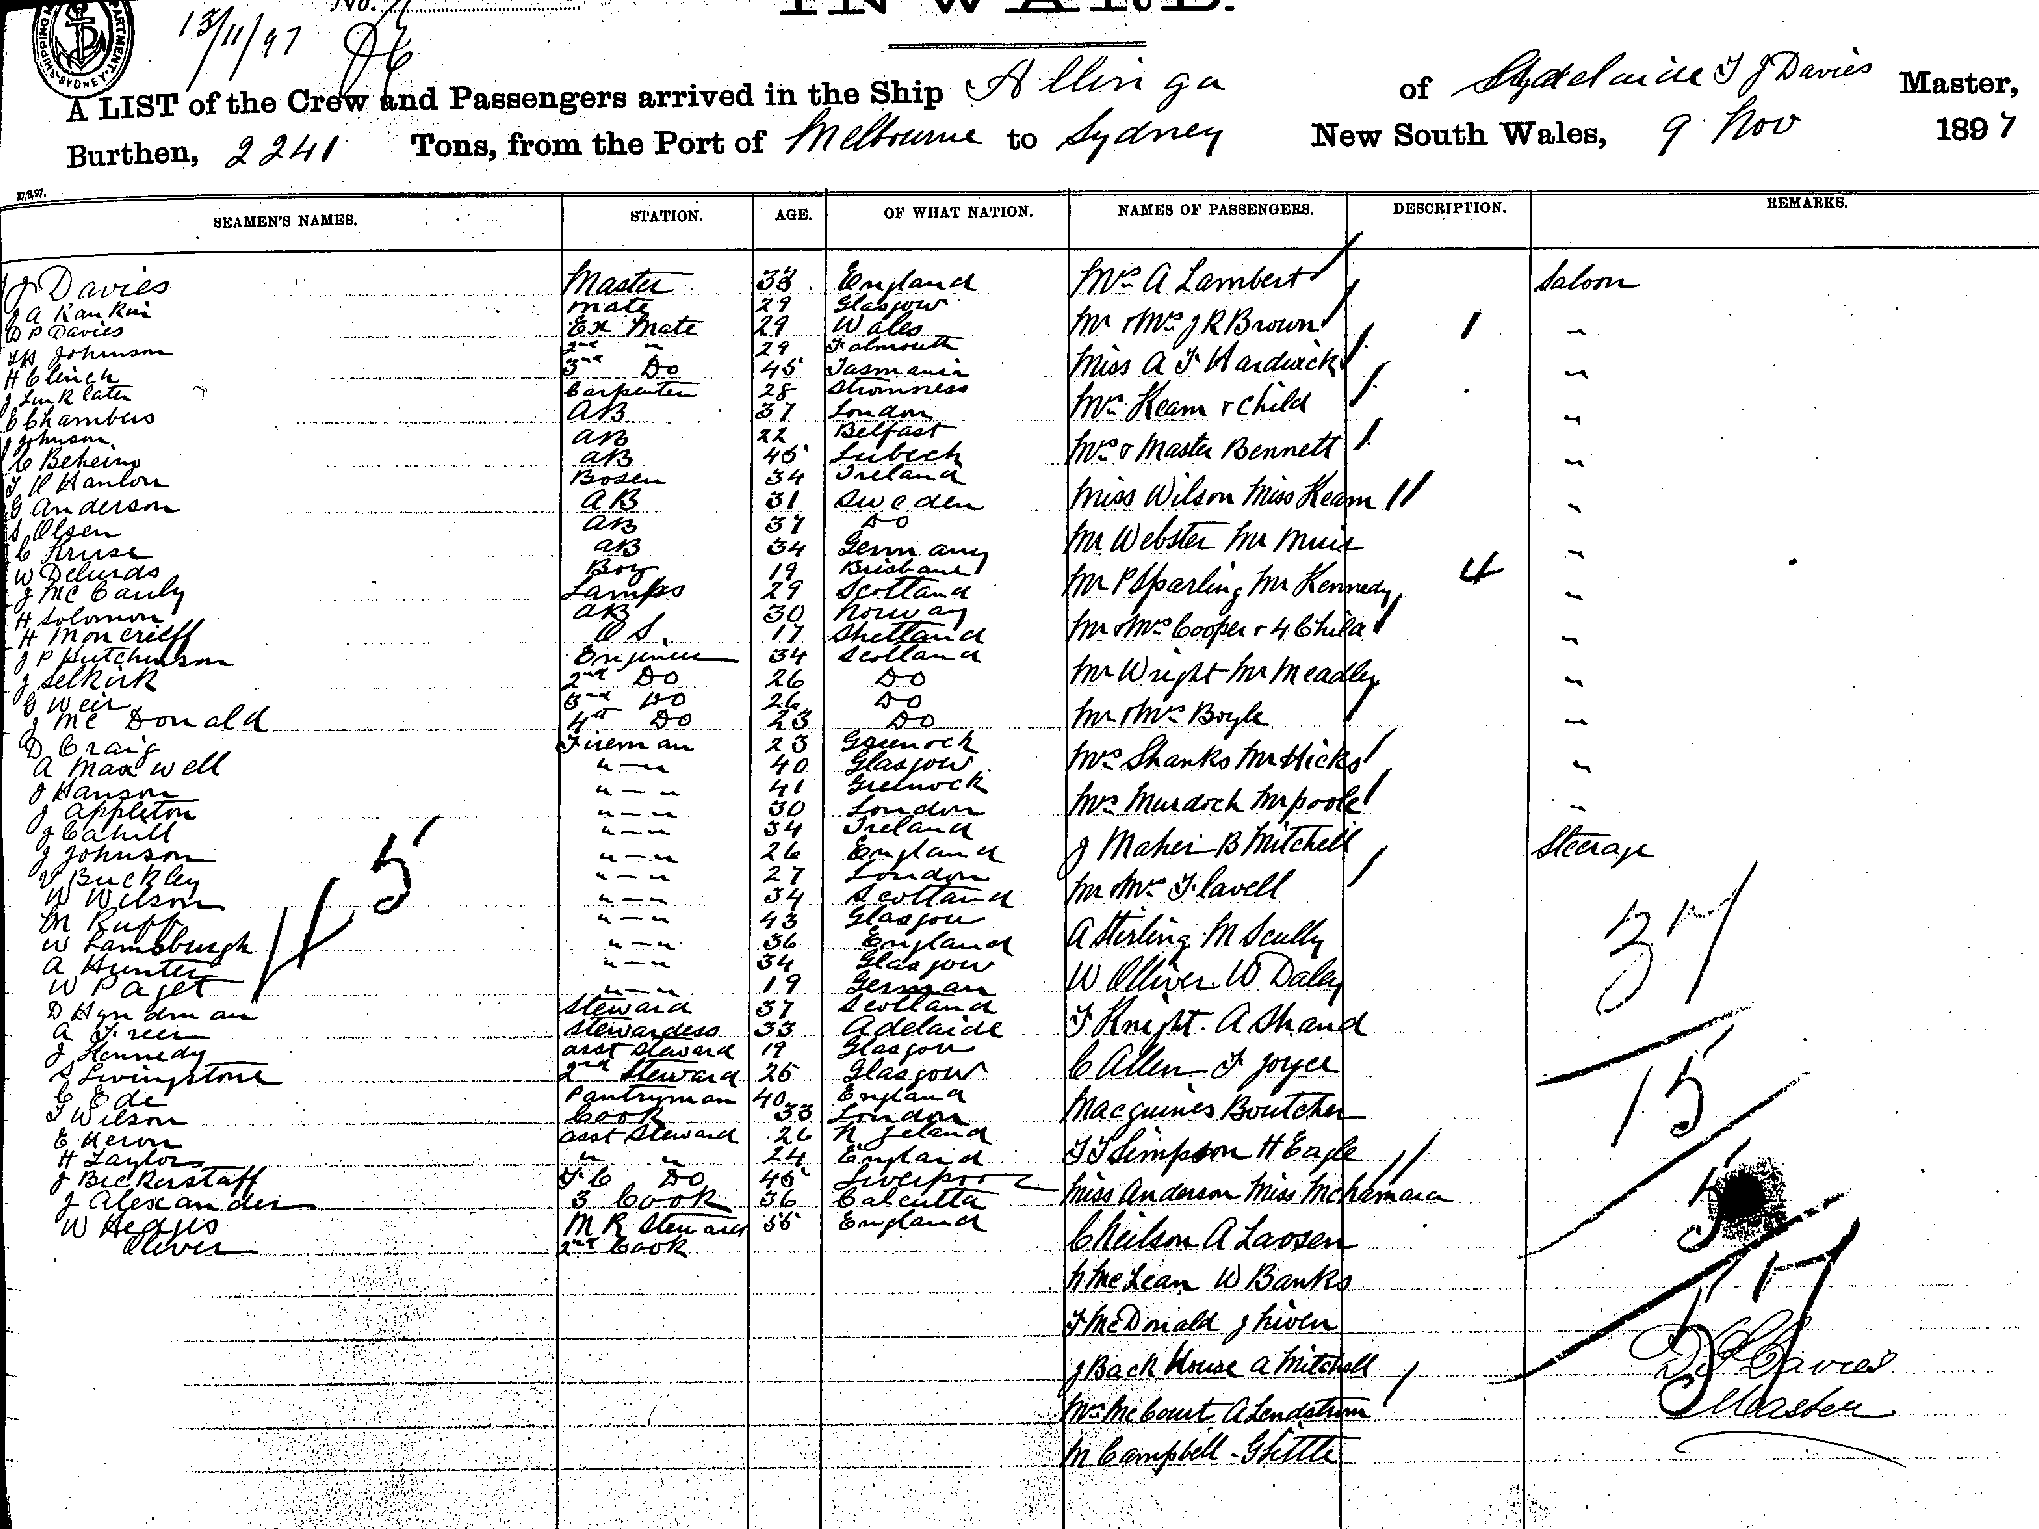 13/11/97
No.
INWARD.
A LIST of the Crew and Passengers arrived in the Ship Allinga of Adelaide T J Davies Master,
Burthen, 2241 Tons, from the Port of Melbourne to Sydney New South Wales, 9 Nov 1897
SEAMEN'S NAMES. STATION. AGE. OF WHAT NATION. NAMES OF PASSENGERS. DESCRIPTION. REMARKS.
J Davies Master 33 England
J A Rankin mate 29 Glasgow
D P Davies Ex Mate 29 Wales
Johnson 2nd " 29 Falmouth
H Clinch 3rd Do 45 Tasmania
J Linklater Carpenter 28 Stromness
E Chambers AB 37 London
J Johnson AB AB 22 Belfast
C Beheim AB 45 Lubeck
Hanlon Bosen 34 Ireland
G Anderson AB 31 Sweden
S Olsen AB 37 Do
C Kruse AB 34 Germany
W Boy 19 Brisbane
J McCauly Lamps 29 Scotland
H Solomon AB 30 Norway
H Moncrieff O S. 17 Shetland
J P Hutchinson Engineer 34 Scotland
J Selkirk 2nd Do 26 Do
C Weir 3rd Do 26 Do
J McDonald 4th Do 23 Do
D Craig Fireman 23 Greenock
A Maxwell "—" 40 Glasgow
J Hanson "—" 41 Greenock
J Appleton "—" 30 London
J Cahill "—" 34 Ireland
J Johnson "—" 26 England
Buckley "—" 27 London
W Wilson "—" 34 Scotland
M Ruff "—" 43 Glasgow
W Lamsburgh "—" 36 England
A Hunter "—" 34 Glasgow
W Paget "—" 19 German
D Hyndman Steward 37 Scotland
A Freer Stewardess 33 Adelaide
J Kennedy asst Steward 19 Glasgow
S Livingstone 2nd Steward 25 Glasgow
C Ede Pantryman 40 England
T Wilson Cook 33 London
E Heron asst Steward 26 N Zeland
H Taylor " " 24 England
J Bickerstaff F C Do 45 Liverpool
J Alexander 3 Cook 36 Calcutta
W Hedges M R Steward 55 England
Oliver 2nd Cook
45
Mrs A Lambert Saloon
Mr & Mrs J R Brown 1 "
Miss A F Hardwick "
Mrs Keam & Child "
Mrs & Master Bennett "
Miss Wilson Miss Keam "
Mr Webster Mr Muir "
Mr P Sparling Mr Kennedy 4 "
Mr & Mrs Cooper & 4 Child "
Mr Wright Mr Meadley "
Mr & Mrs Boyle "
Mrs Shanks Mr Hicks "
Mrs Murdoch Mr poole "
J Maher B Mitchell Steerage
Mr Mrs Flavell
A Stirling M Scully
W Olliver W Daley
T Knight A Shand
C Allen F Joyce
Macguines Boutcher
T T Simpson H Eagle
Miss Anderson Miss McNamara
C Neilson A Larsen
N McLean W Banks
F McDonald J Niven
J Back House A Mitchell
Mrs McCourt A Lendstrom
M Campbell G Little
37
15
5
57
Davies
Master